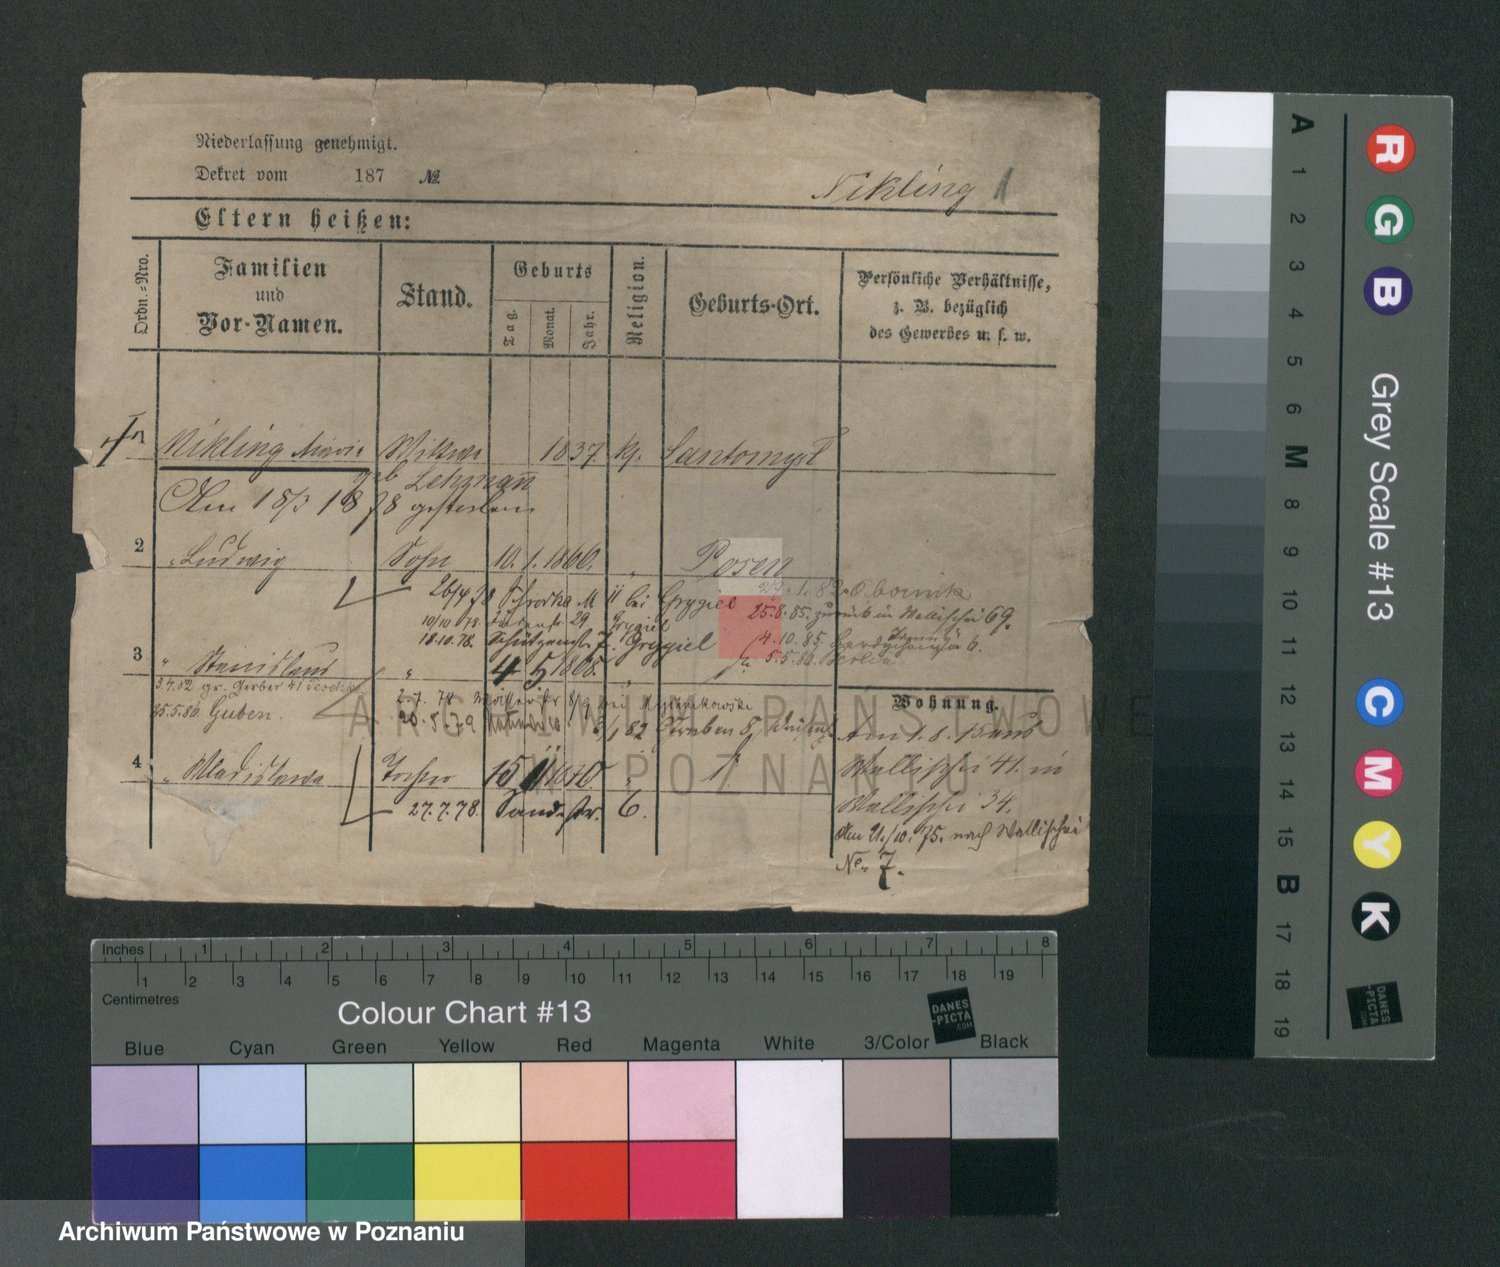 Niederlassung genehmigt.
Dekret vom 187 №
Nikling 1
Eltern heißen:
Ordn.-Nro.
Familien
und
Vor-Namen.
Stand.
Geburts
Tag.
Monat.
Jahr.
Religion.
Geburts-Ort.
Persönliche Verhältnisse,
z. B. bezüglich
des Gewerbes u. s. w.
1 Nikling Maria Wittwe 1837 kg. Santomysl
geb Lehman
Am 18/3 1878 gestorben
2 " Ludwig Sohn 10. 1. 1860. " Posen
26/4 78 Schrodka M 11 bei Grygiel 1. 82. Obornik
25.8.85. zurück in Wallischei 69.
10/10 78 29 Grygiel
18.10.78. Schützenstr. 7. Grygiel 4.10.85.
5.5.86. Berlin
3 " Stanislaus " 4 5 1865. "
3.4.82 gr. Gerber 41
25.5.86 Guben.
2.7.78 8/9 bei
20.5.79 10 82 Graben 8,
Wohnung.
Am 1. 8. 75 aus
Wallischei 41. in
Wallischei 34.
den 21./10. 75. nach Wallischei
No. 7.
4 " Wladislawa Tochter 15 11 "
27.7.78. Sandstr. 6.
ARCHIWUM PAŃSTWOWE
W POZNANIU
Inches 1 2 3 4 5 6 7 8
1 2 3 4 5 6 7 8 9 10 11 12 13 14 15 16 17 18 19
Centimetres
Colour Chart #13
DANES
-PICTA
.COM
Blue Cyan Green Yellow Red Magenta White 3/Color Black
A 1 2 3 4 5 6 M 8 9 10 11 12 13 14 15 B 17 18 19
R G B
Grey Scale #13
C M Y K
DANES
-PICTA
.COM
Archiwum Państwowe w Poznaniu